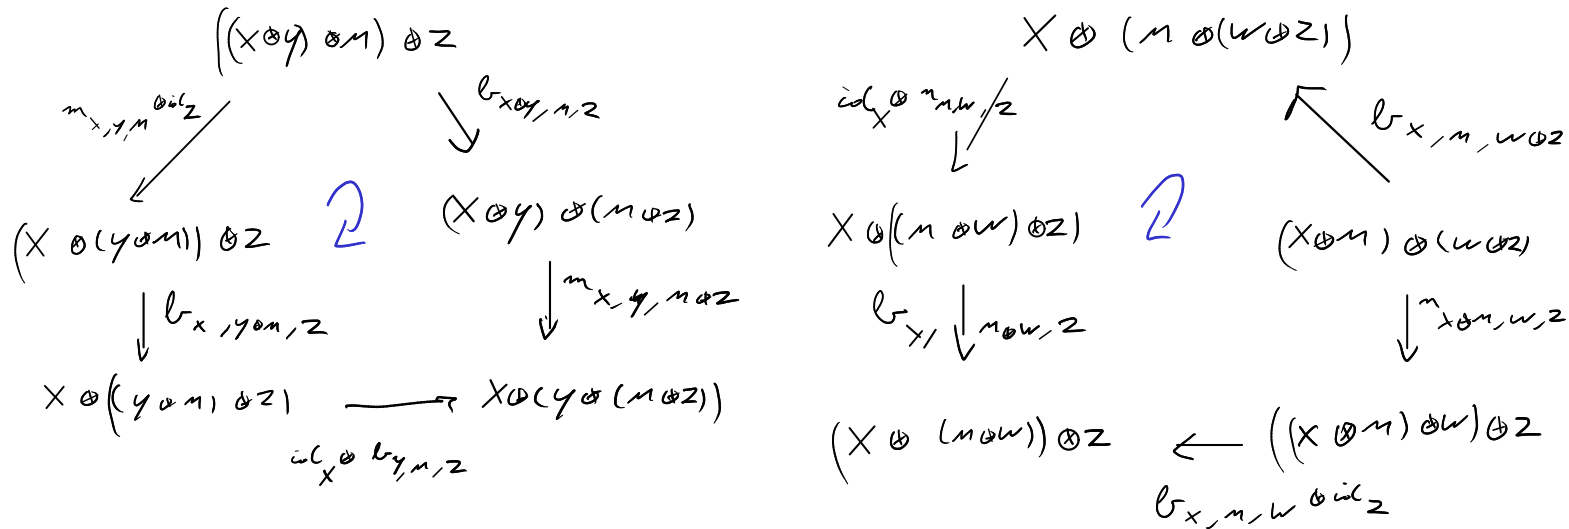 ((X⊗y)⊗M)⊗Z
m_{x,y,M}⊗id_Z
b_{x⊗y,M,Z}
(X⊗(y⊗M))⊗Z
(X⊗y)⊗(M⊗Z)
b_{x,y⊗M,Z}
m_{x,y,M⊗Z}
X⊗((y⊗M)⊗Z)
X⊗(y⊗(M⊗Z))
id_X⊗b_{y,M,Z}
X⊗(M⊗(W⊗Z))
id_X⊗n_{M,W,Z}
b_{x,M,W⊗Z}
X⊗((M⊗W)⊗Z)
(X⊗M)⊗(W⊗Z)
b_{x,M⊗W,Z}
n_{X⊗M,W,Z}
(X⊗(M⊗W))⊗Z
((X⊗M)⊗W)⊗Z
b_{x,M,W}⊗id_Z